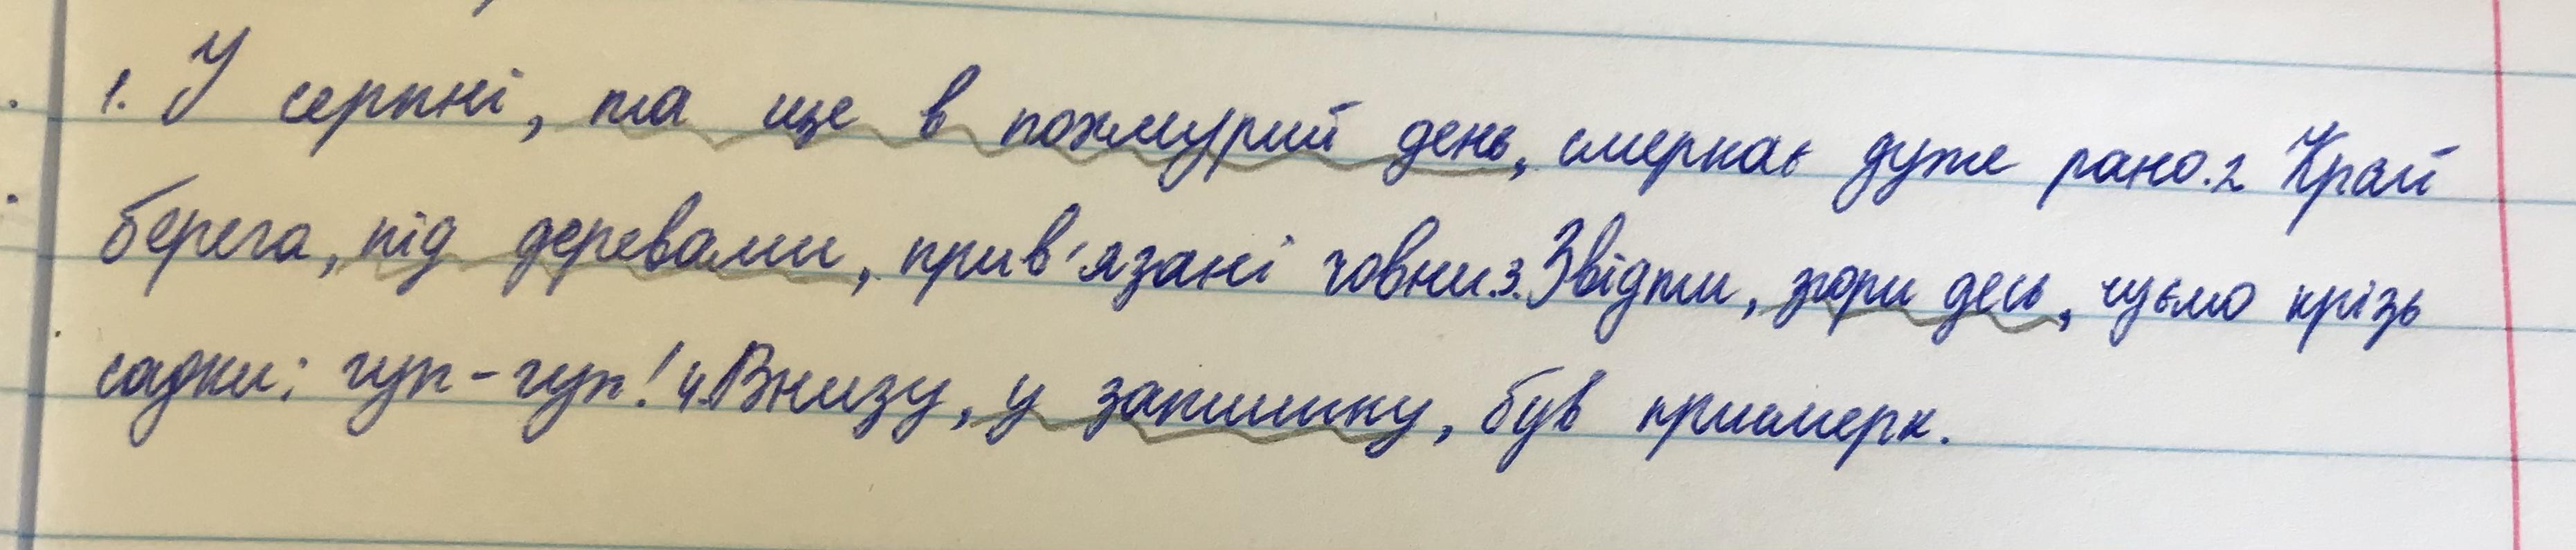 1. У серпні, та ще в похмурий день, смеркає дуже рано. 2 Край
берега, під деревами, прив'язані човни. 3. Звідти, згори десь, чуємо крізь
садки: гуп-гуп! 4. Внизу, у затишку, був присмерк.